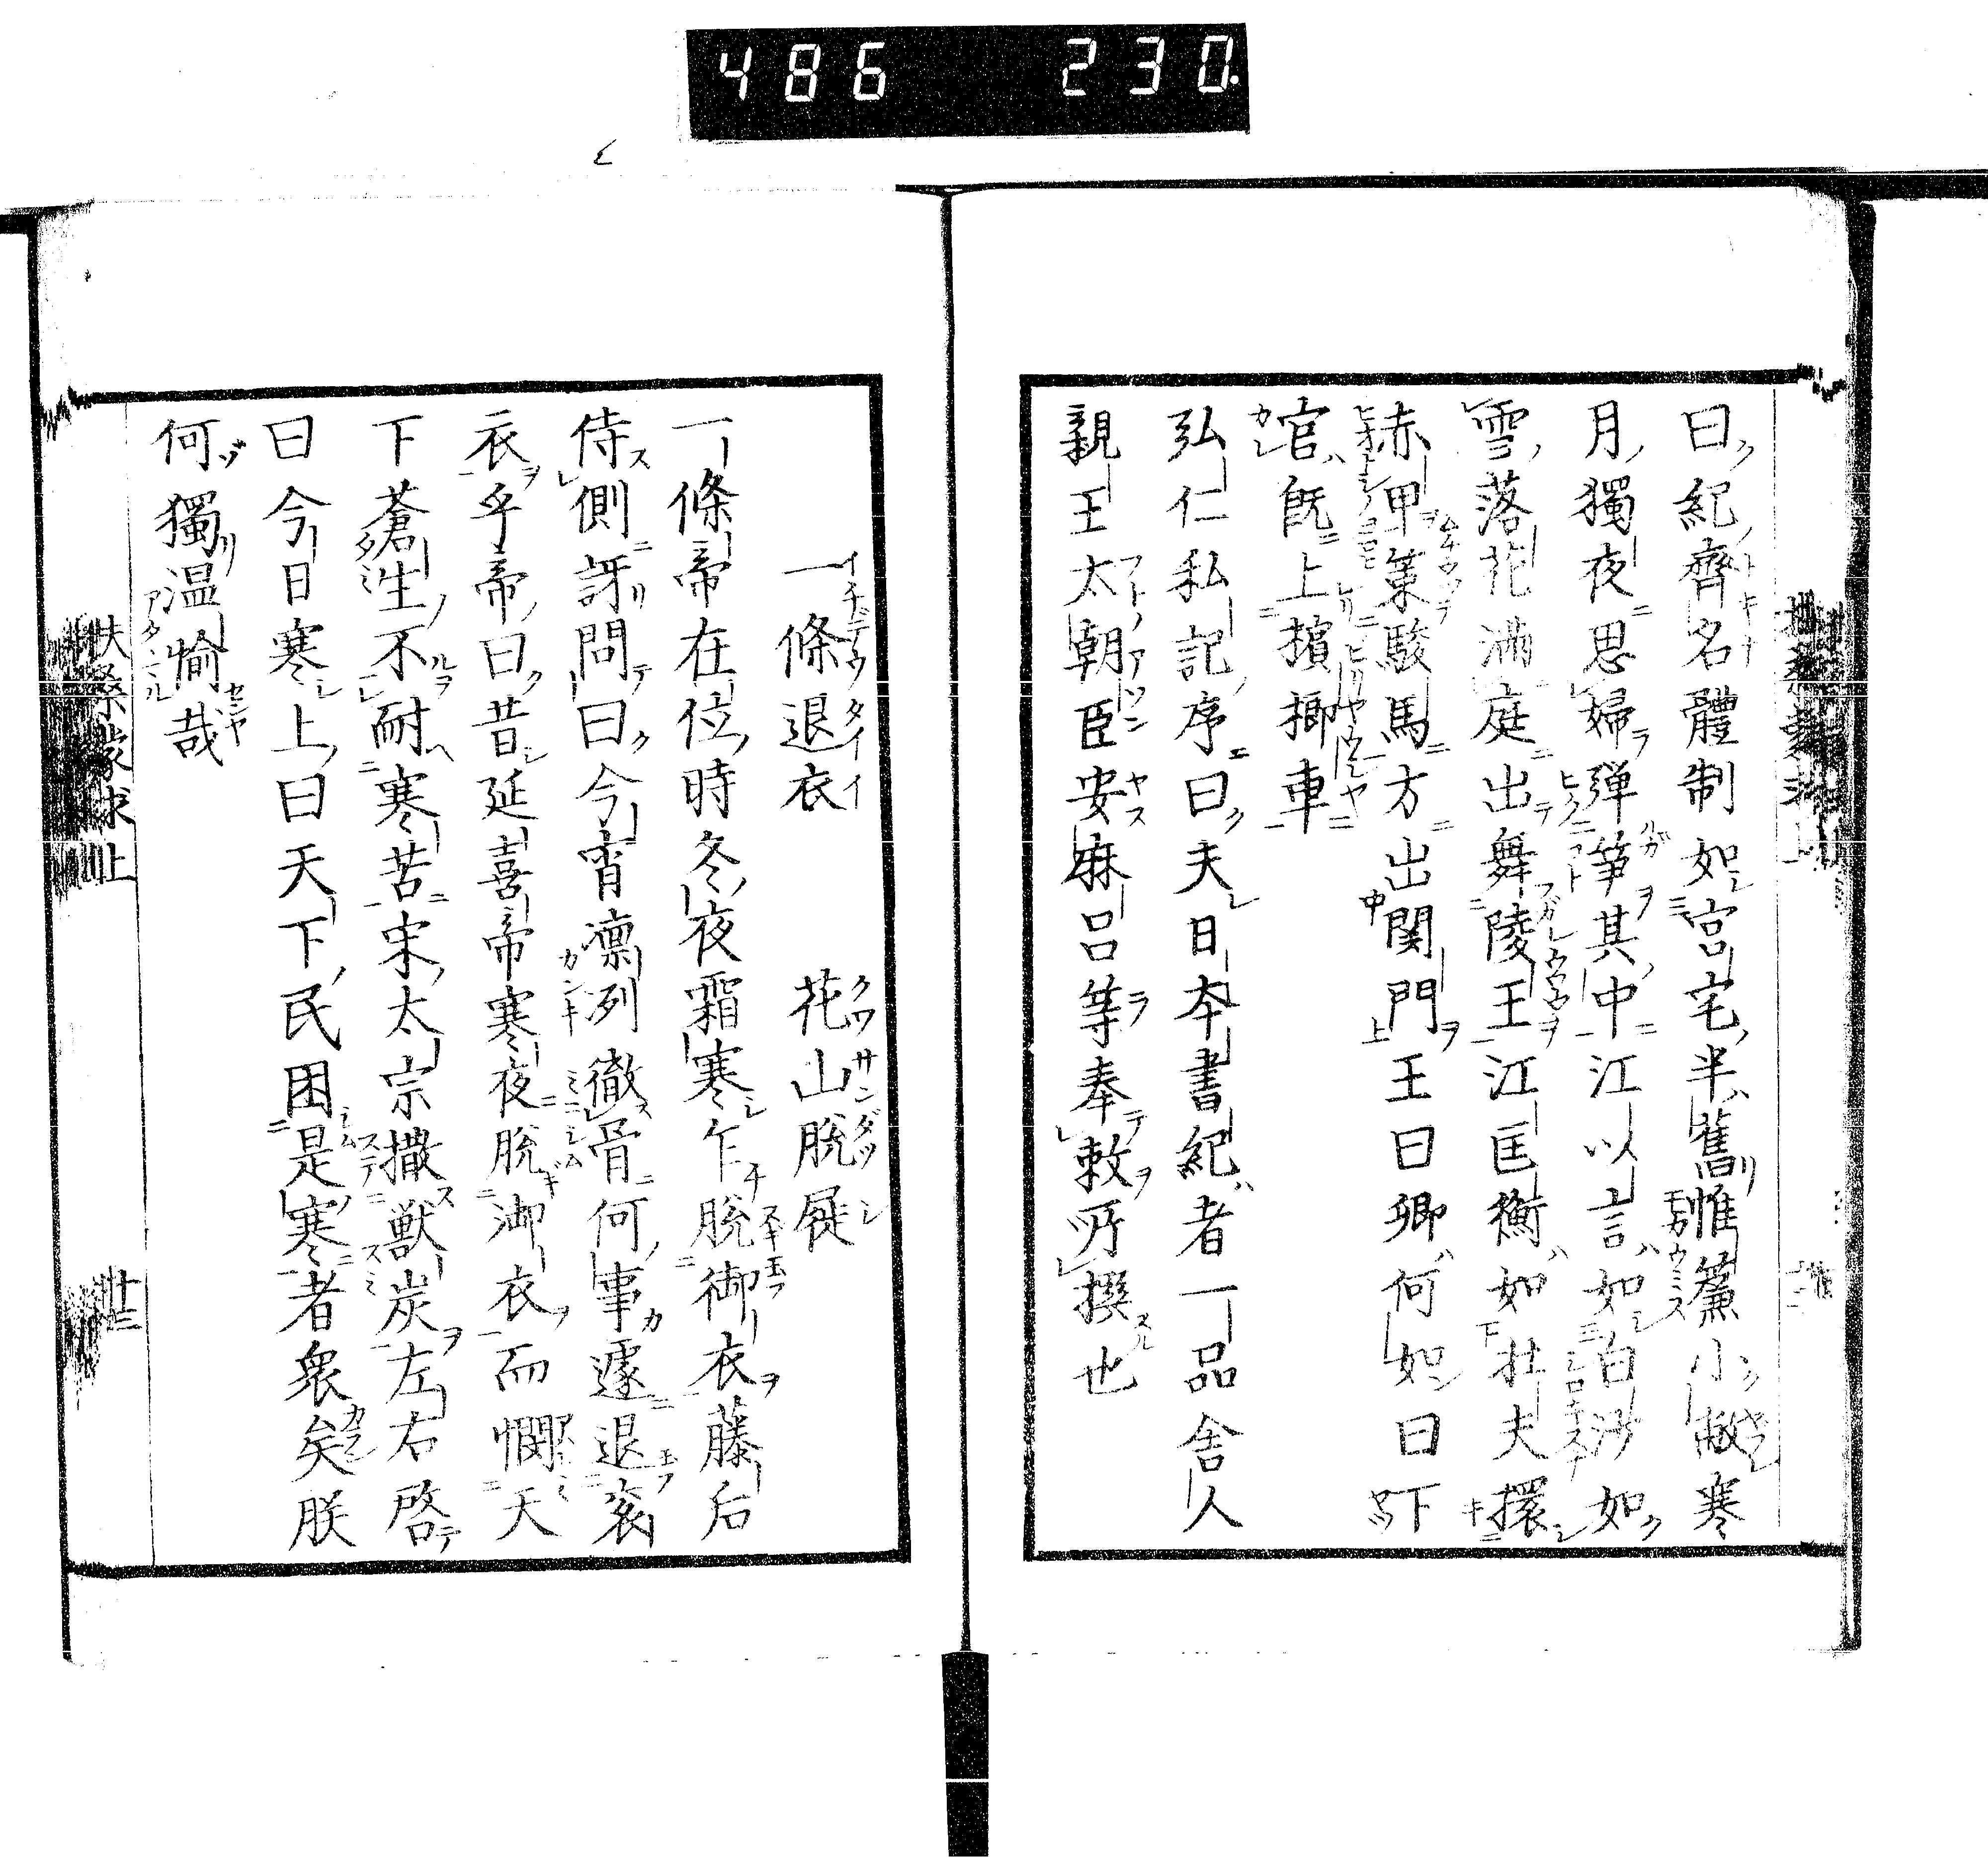 486 230.
曰紀齊名體制如宮宅半舊帷簾小敝寒
月獨夜思婦弾箏其中江以言如白沙如
雪落花満庭出舞陵王江匡衡如壮夫擐
赤甲策駿馬方出関門王曰卿何如曰下
官既上擯㧕車
弘仁私記序曰夫日本書紀者一品舎人
親王太朝臣安麻呂等奉敕所撰也
一條退衣 花山脱屣
一條帝在位時冬夜霜寒乍脱御衣藤后
侍側訝問曰今宵凛列徹骨何事遽退衮
衣乎帝曰昔延喜帝寒夜脱御衣而憫天
下蒼生不耐寒苦宋太宗撒獣炭左右啓
曰今日寒上曰天下民困是寒者衆矣朕
何獨温愉哉
扶桑蒙求上 廿三